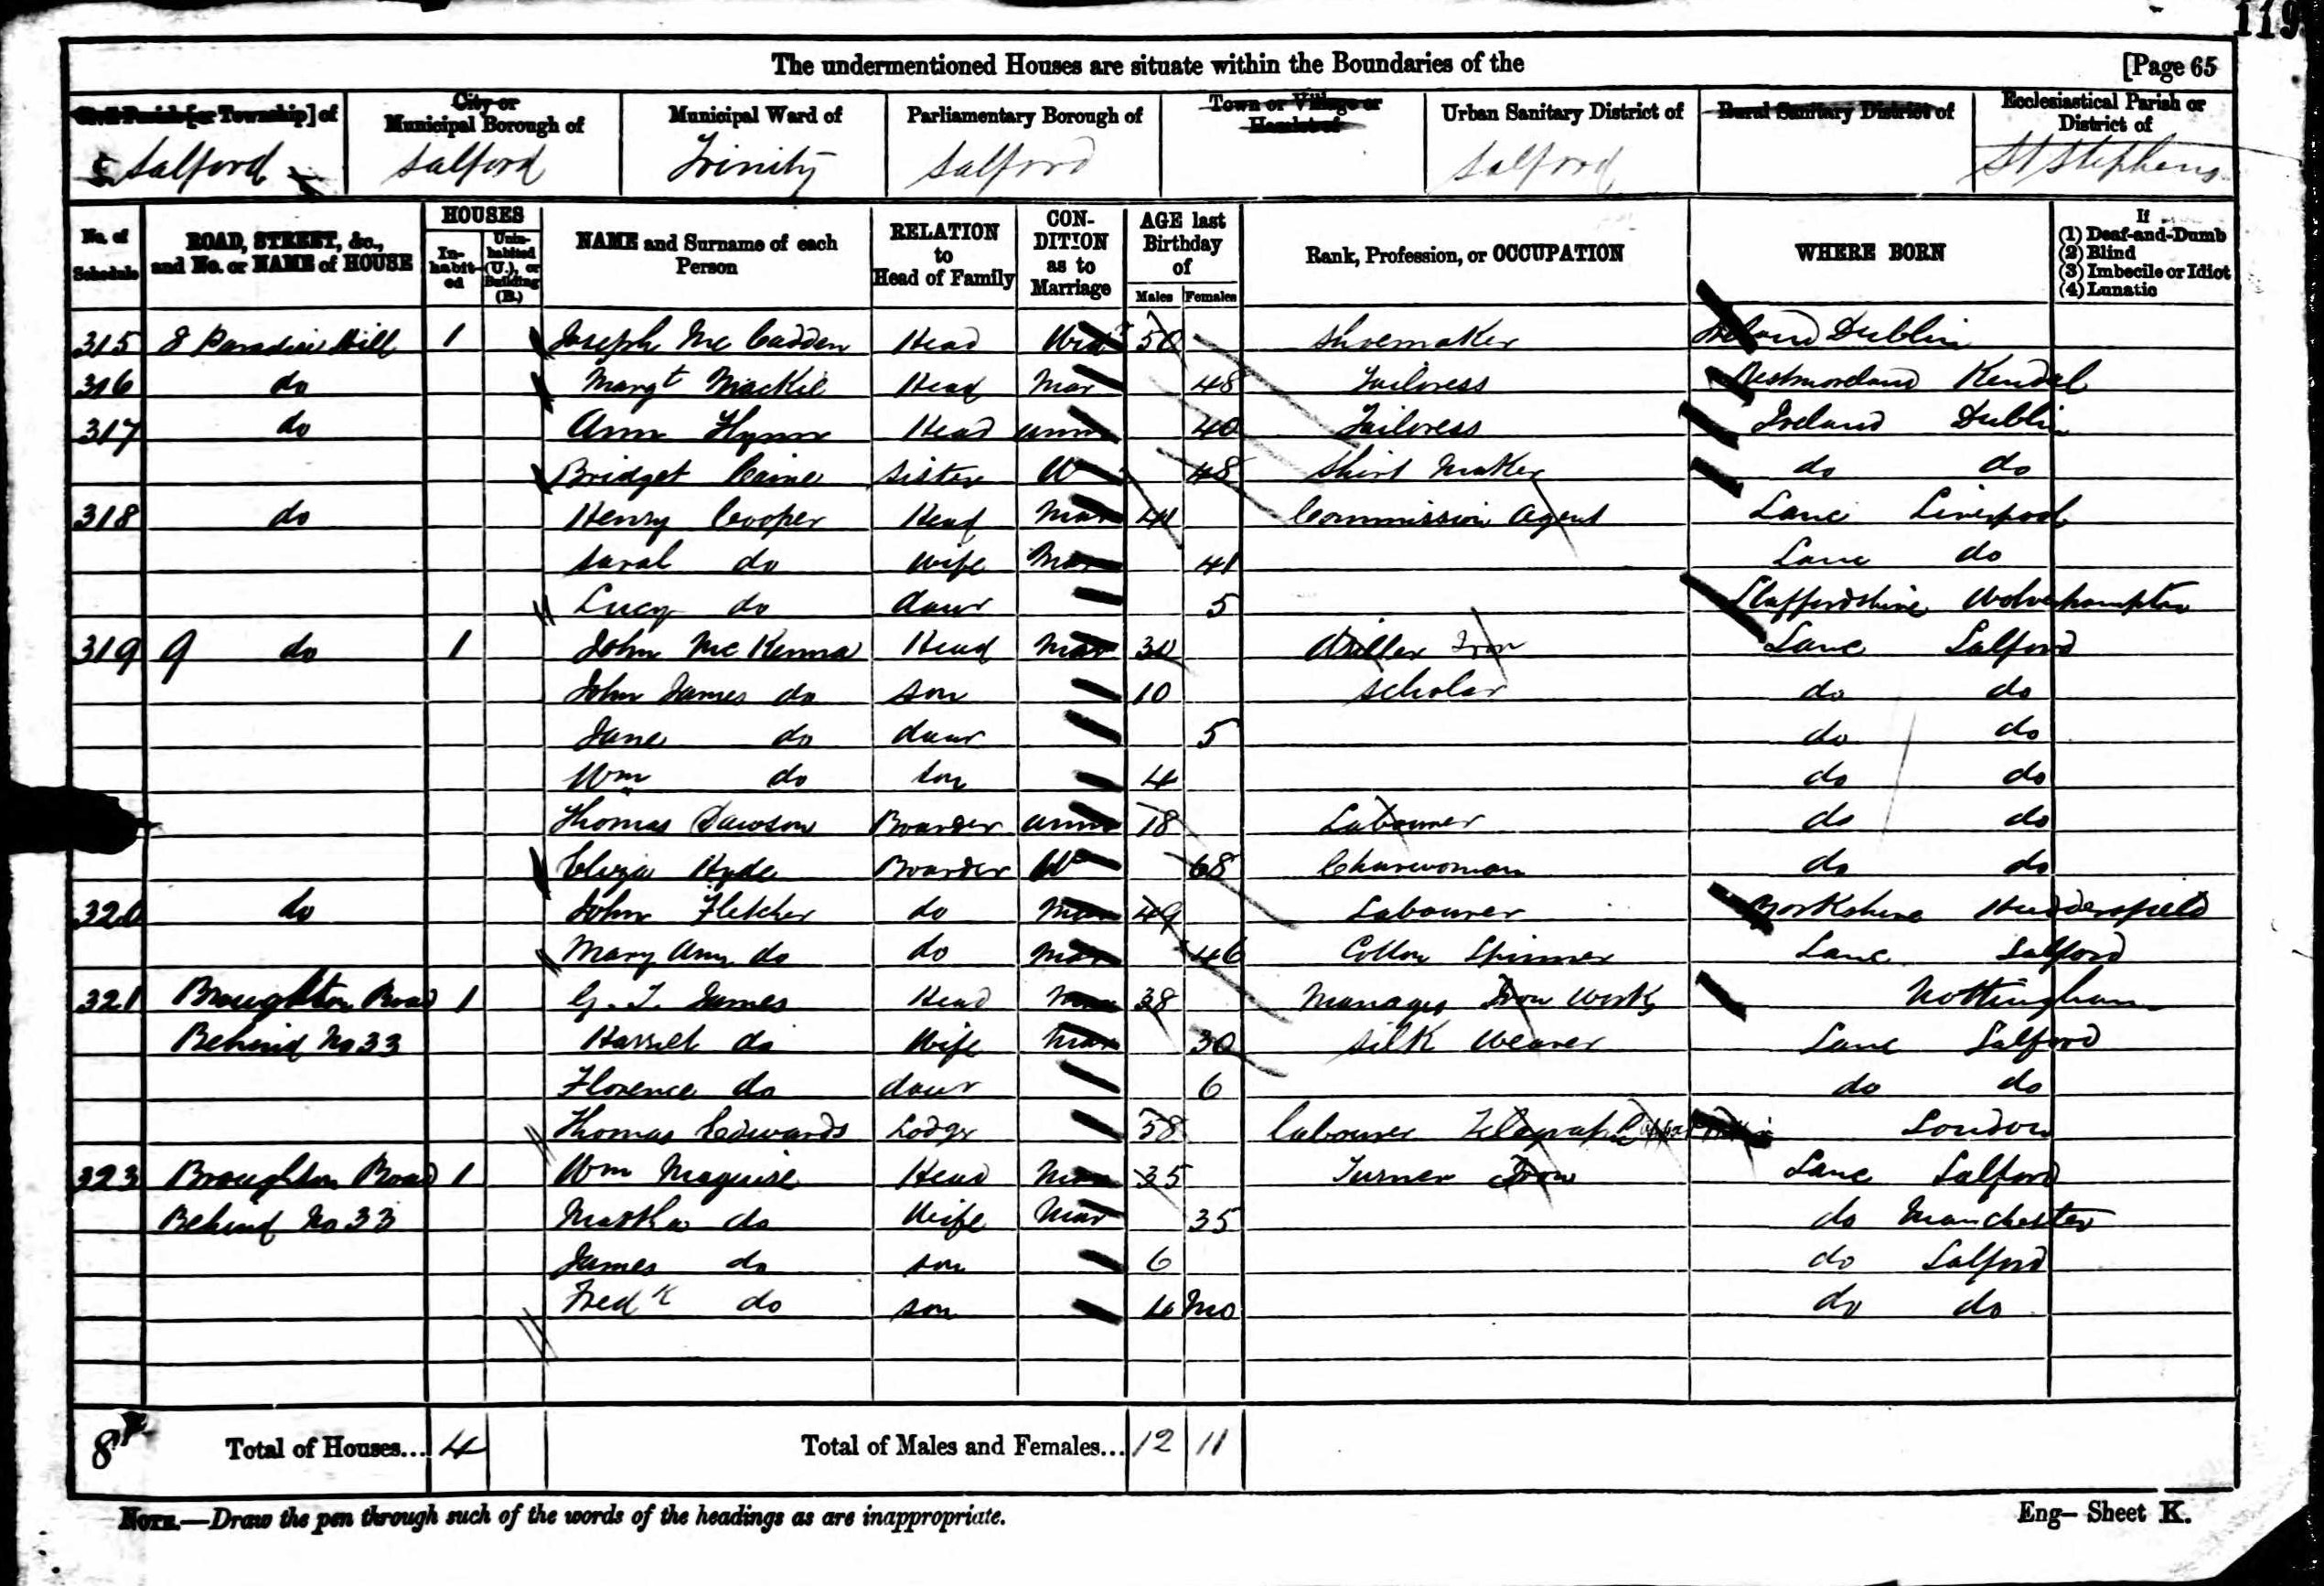 119
The undermentioned Houses are situate within the Boundaries of the [Page 65
Civil Parish [or Township] of City or Municipal Borough of Municipal Ward of Parliamentary Borough of Town or Village or Hamlet of Urban Sanitary District of Rural Sanitary District of Ecclesiastical Parish or District of
Salford Salford Trinity Salford Salford St Stephens
No. of Schedule ROAD, STREET, &c., and No. or NAME of HOUSE HOUSES In-habit-ed Unin-habited (U.), or Building (B.) NAME and Surname of each Person RELATION to Head of Family CON-DITION as to Marriage AGE last Birthday of Males Females Rank, Profession, or OCCUPATION WHERE BORN If (1) Deaf-and-Dumb (2) Blind (3) Imbecile or Idiot (4) Lunatic
315 8 Paradise Hill 1 Joseph Mc Cadden Head 50 Shoemaker Ireland Dublin
316 do Margt Mackil Head Mar 48 Tailoress Westmoreland Kendal
317 do Ann Flynn Head Unm 40 Tailoress Ireland Dublin
Bridget Caine Sister W 48 Shirt Maker do do
318 do Henry Cooper Head Mar 41 Commission Agent Lanc Liverpool
Sarah do Wife Mar 41 Lanc do
Lucy do daur 5 Staffordshire Wolverhampton
319 9 do 1 John Mc Kenna Head Mar 30 Driller Iron Lanc Salford
John James do son 10 Scholar do do
Jane do daur 5 do do
Wm do son 4 do do
Thomas Dawson Boarder Unm 18 Labourer do do
Eliza Hyde Boarder W 68 Charwoman do do
320 do John Fletcher do Mar 49 Labourer Yorkshire Huddersfield
Mary Ann do do Mar 46 Cotton Spinner Lanc Salford
321 Broughton Road 1 G. T. James Head Mar 38 Manager Iron Works Nottingham
Behind No 33 Harriet do Wife Mar 30 Silk Weaver Lanc Salford
Florence do daur 6 do do
Thomas Edwards Lodger 58 Labourer Telegraph London
323 Broughton Road 1 Wm Maguire Head Mar 35 Turner Iron Lanc Salford
Behind No 33 Martha do Wife Mar 35 do Manchester
James do son 6 do Salford
Fredk do son Mo do do
8 Total of Houses... 4 Total of Males and Females... 12 11
NOTE.—Draw the pen through such of the words of the headings as are inappropriate. Eng– Sheet K.